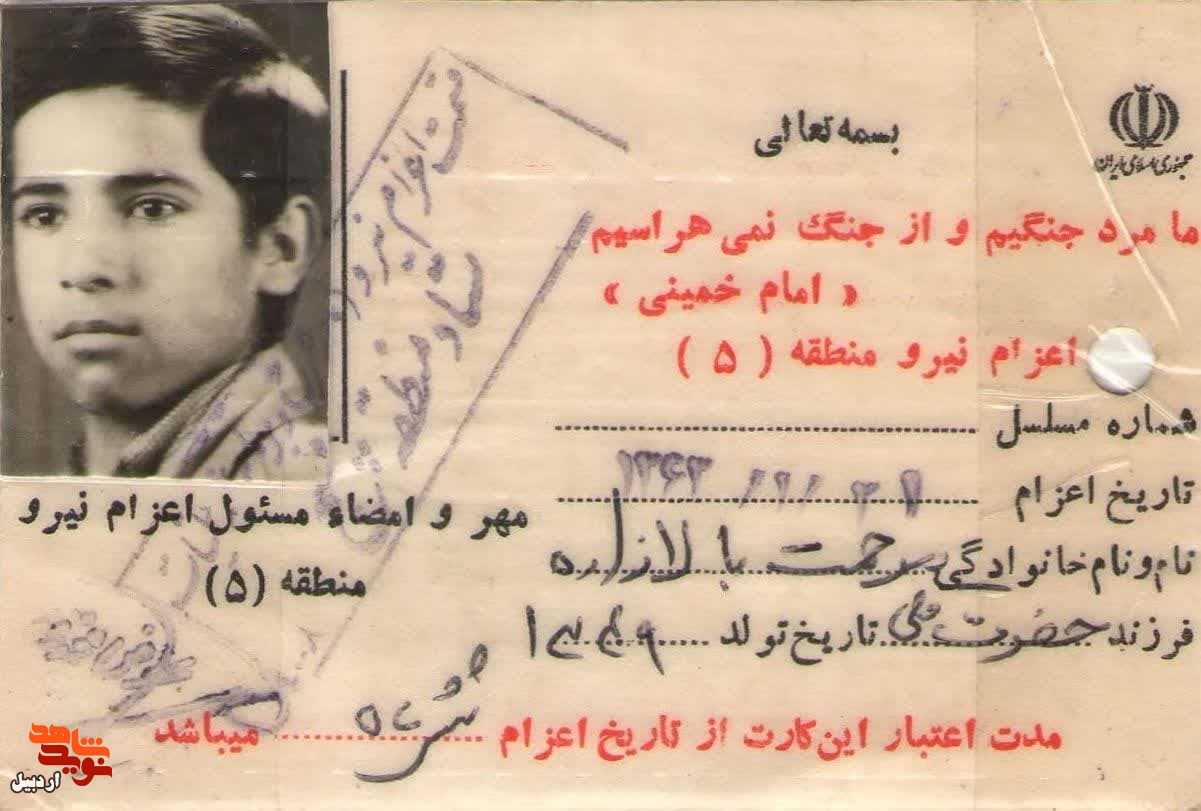 جمهوری اسلامی ایران
بسمه تعالی
ما مرد جنگیم و از جنگ نمی هراسیم
« امام خمینی »
اعزام نیرو منطقه ( ۵ )
شماره مسلسل
تاریخ اعزام ۱۳۶۳
نام و نام خانوادگی رحمت بالازاده
فرزند حضرت قلی تاریخ تولد
مدت اعتبار این کارت از تاریخ اعزام میباشد
مهر و امضاء مسئول اعزام نیرو
منطقه (۵)
قسمت اعزام نیرو
ستاد منطقه
نوید شاهد
اردبیل